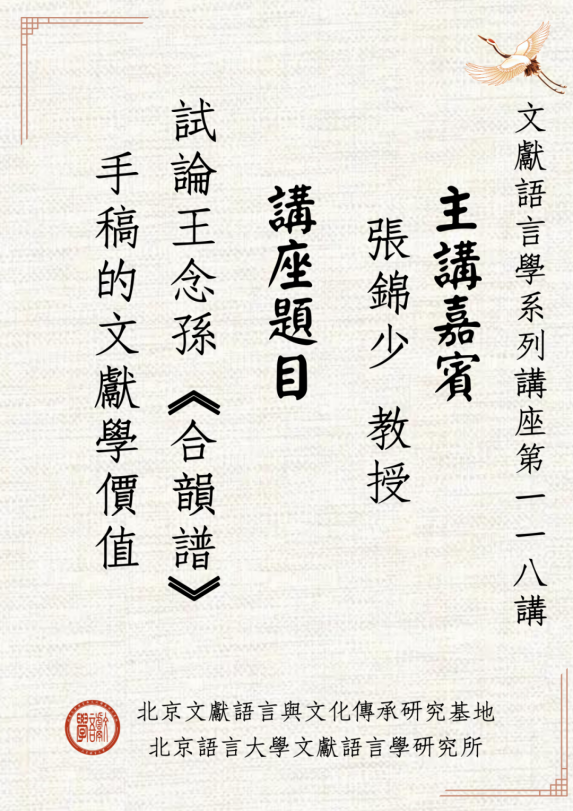 文獻語言學系列講座第一一八講
主講嘉賓
張錦少 教授
講座題目
試論王念孫《合韻譜》
手稿的文獻學價值
北京文獻語言與文化傳承研究基地
北京語言大學文獻語言學研究所